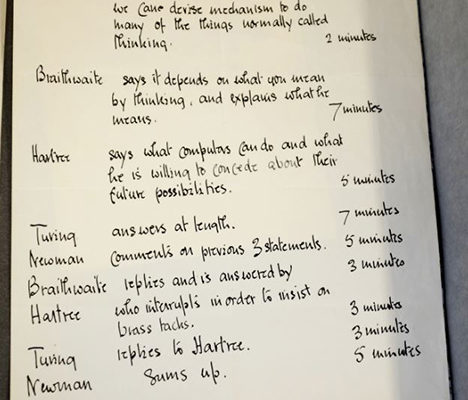 we cane devise mechanism to do
many of the things normally called
thinking. 2 minutes
Braithwaite says it depends on what you mean
by thinking, and explains what he
means. 7 minutes
Hartree says what computors can do and what
he is willing to concede about their
future possibilities. 5 minutes
Turing answers at length. 7 minutes
Newman comments on previous 3 statements. 5 minutes
Braithwaite replies and is answered by 3 minutes
Hartree who interrupts in order to insist on
brass tacks. 3 minutes
Turing replies to Hartree. 3 minutes
Newman sums up. 5 minutes